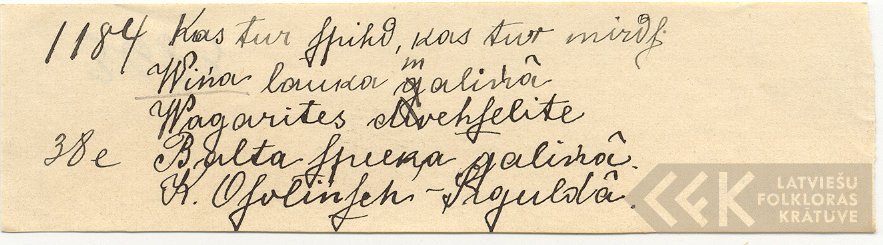 1184 Kas tur spihd, kas tur mirdz
Wiņa lauka m galiņâ
Wagarites dwehselite
38e Balta spieķa galiņâ.
K. Osoliņsch, - Siguldâ.
LATVIEŠU
FOLKLORAS
KRĀTUVE